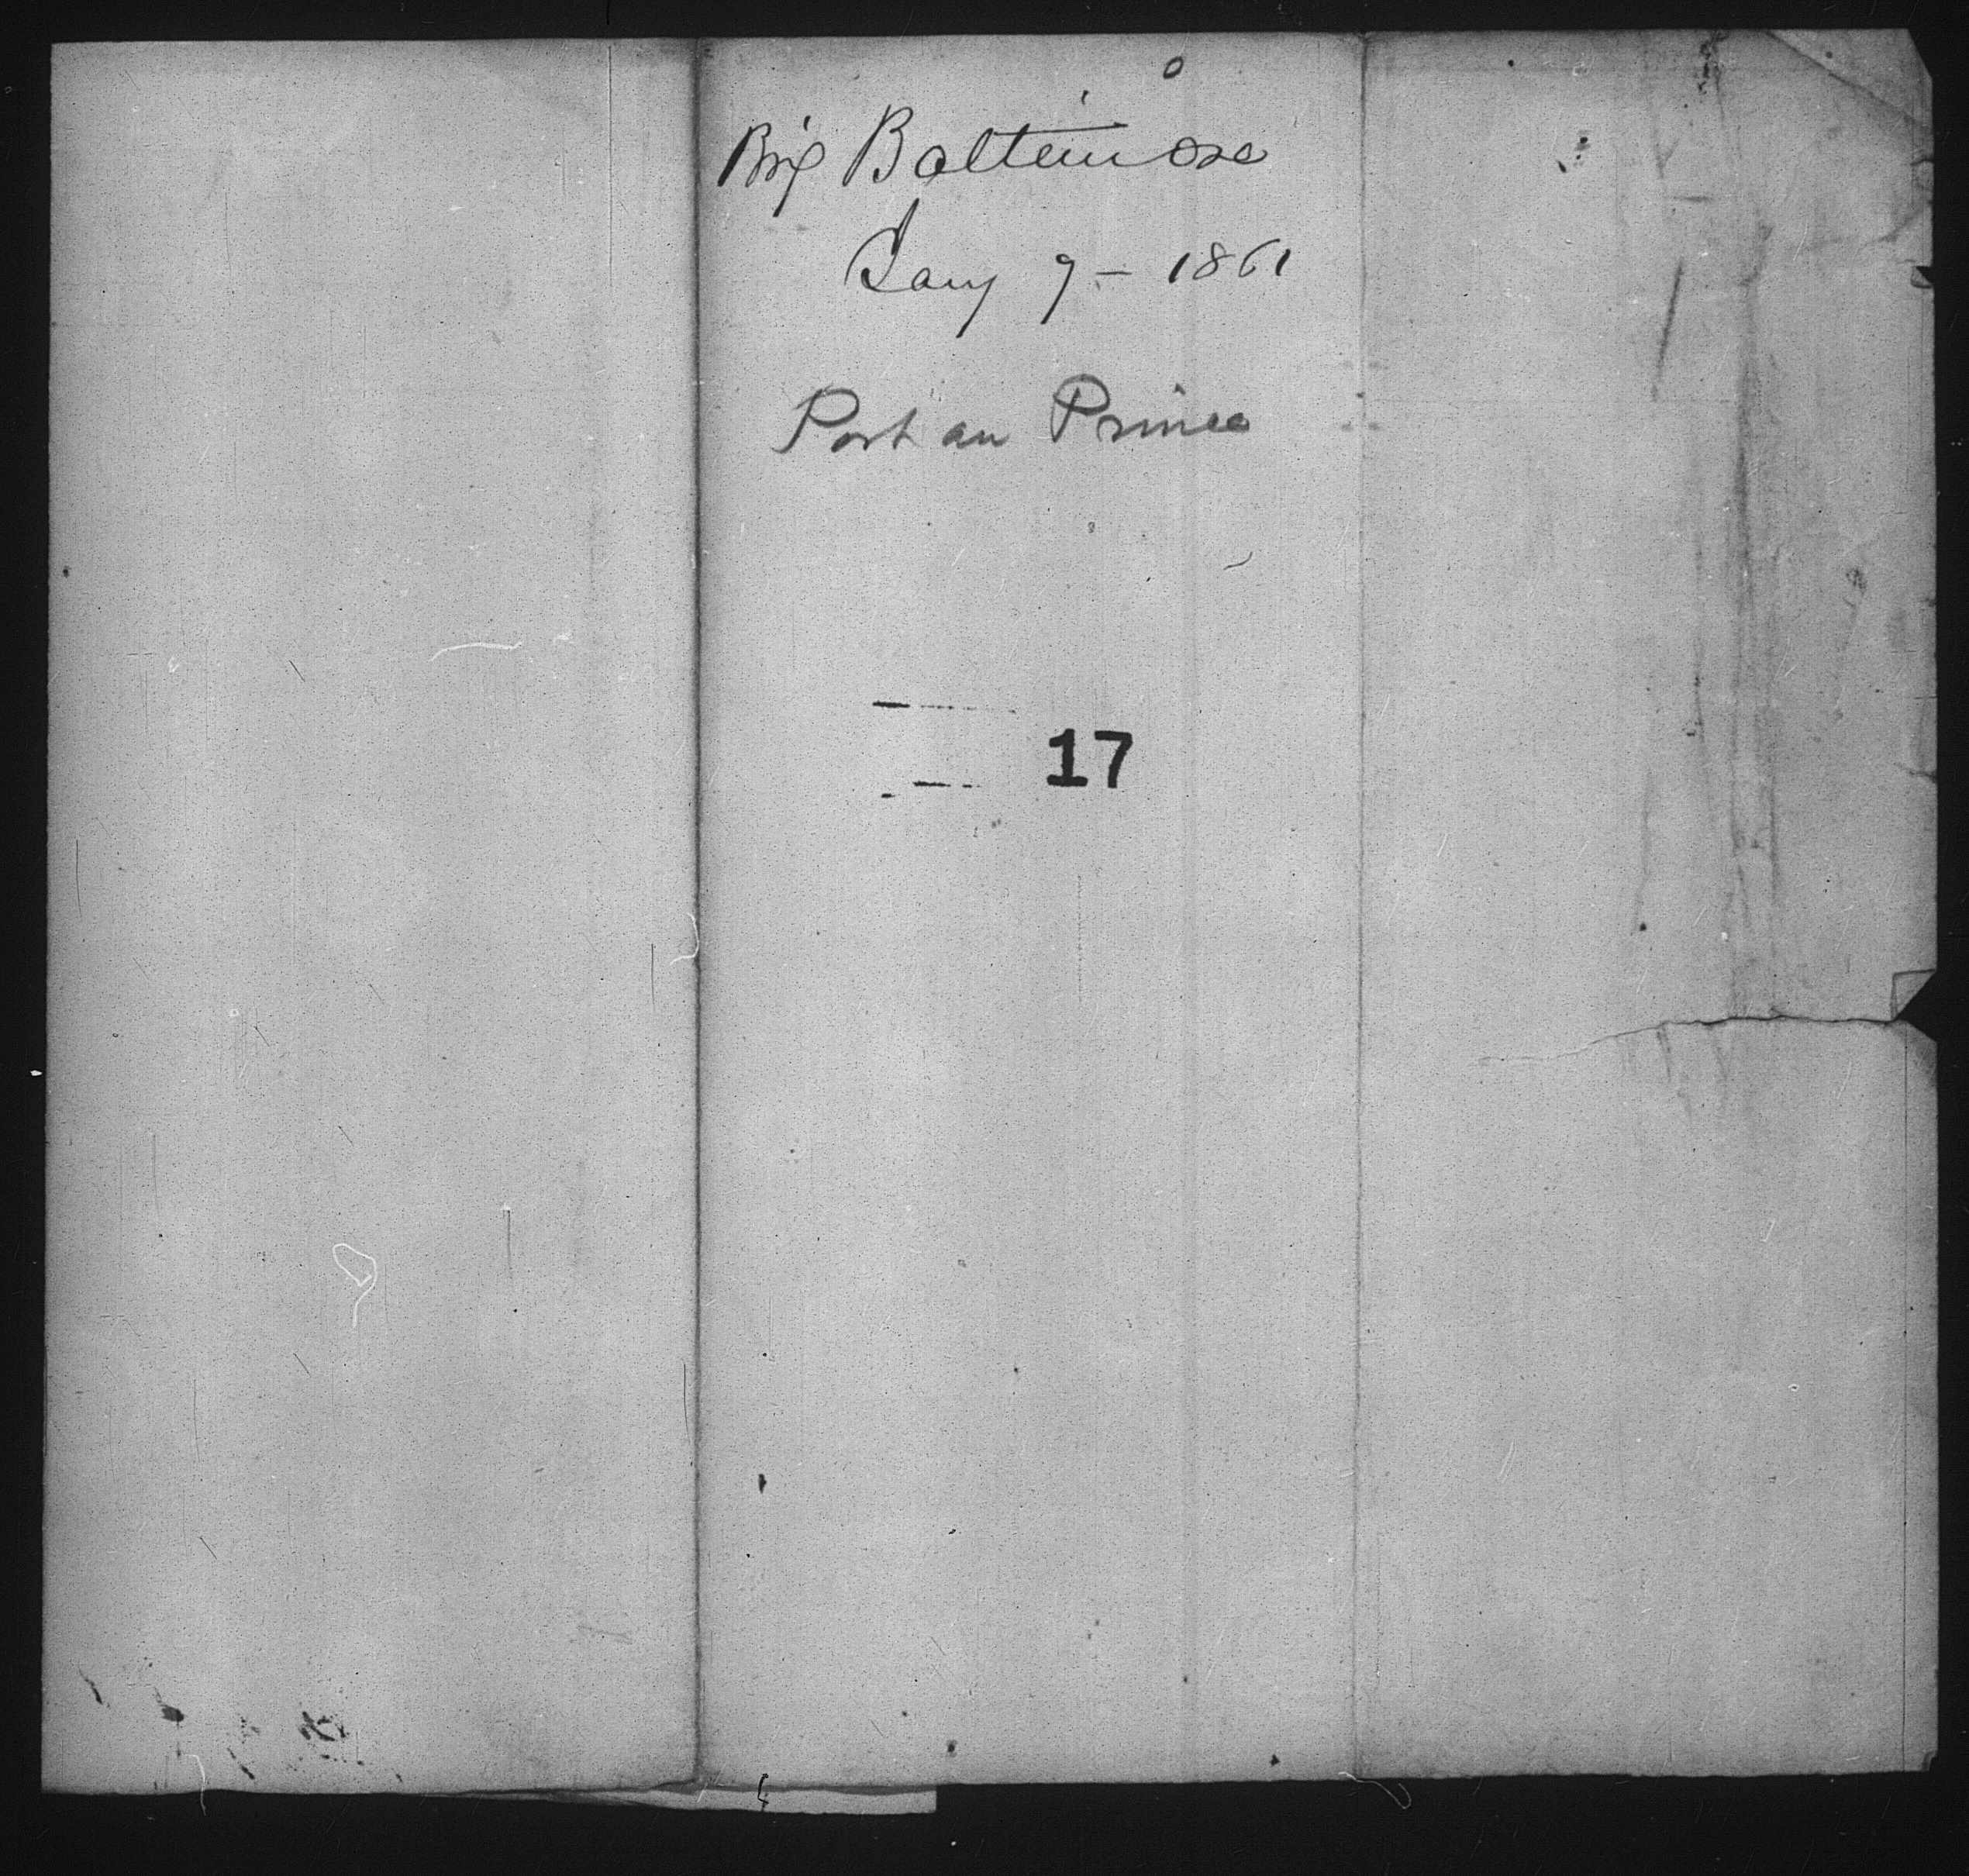 Brig Baltimore
Jany 9 - 1861
Port au Prince
17